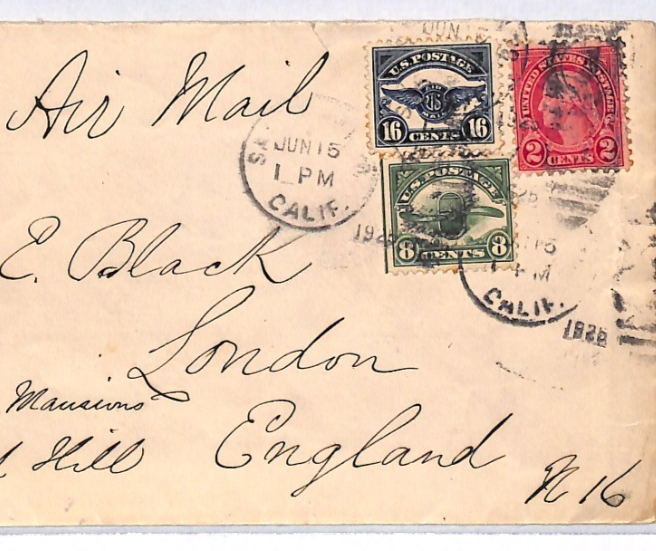 Air Mail
U.S. POSTAGE
AIR MAIL
16 CENTS 16
UNITED STATES POSTAGE
2 CENTS 2
JUN 15
1 PM
CALIF.
U.S. POSTAGE
8 CENTS 8
PM
CALIF.
E. Black
London
Mansions
Hill England N 16